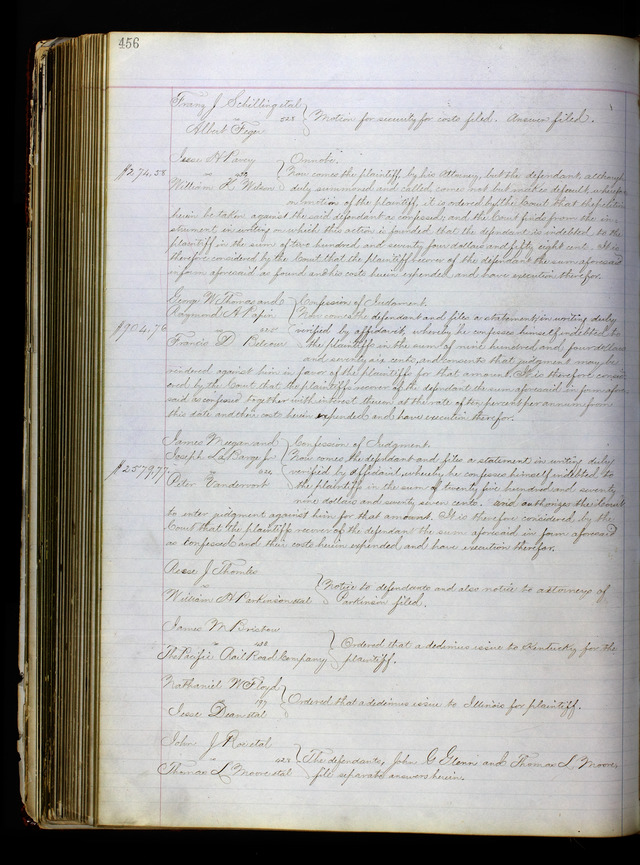 456
Franz J Schilling et al
vs 528 } Motion for security for costs filed. Answer filed.
Albert Feger
Jesse H
$274.58 vs
Now comes the plaintiff by his Attorney, but the defendant although
William H Wilson duly summoned and called comes not but makes default wherefore
on motion of the plaintiff it is ordered by the Court that the petition
herein be taken against the said defendant as confessed; and the Court finds from the in-
strument in writing on which this action is founded that the defendant is indebted to the
plaintiff in the sum of two hundred and seventy four dollars and fifty eight cents. It is
therefore considered by the Court that the plaintiff recover of the defendant the sum aforesaid
in form aforesaid as found and his costs herein expended, and have execution therefor.
George W Thomas and } Confession of Judgment.
Raymond A Papin } Now comes the defendant and files a statement in writing duly
$904.76 vs verified by affidavit, whereby he confesses himself indebted to
Francis D the plaintiffs in the sum of nine hundred and four dollars
and seventy six cents, and consents that judgment may be
rendered against him in favor of the plaintiffs for that amount. It is therefore consid-
ered by the Court that the plaintiffs recover of the defendant the sum aforesaid in form afore-
said as confessed together with interest thereon at the rate of ten per cent per annum from
this date and their costs herein expended and have execution therefor.
James Meegan and } Confession of Judgment.
Joseph La Barge Jr } Now comes the defendant and files a statement in writing duly
$2579.77. vs verified by affidavit, whereby he confesses himself indebted to
Peter Vandervort the plaintiffs in the sum of twenty five hundred and seventy
nine dollars and seventy seven cents. and authorizes the Court
to enter judgment against him for that amount. It is therefore considered by the
Court that the plaintiffs recover of the defendant the sum aforesaid in form aforesaid
as confessed and their costs herein expended, and have execution therefor.
Reese J Thombs
vs } Notice to defendants and also notice to attorneys of
William H Parkinson et al Parkinson filed.
James M Bristow
vs } Ordered that a dedimus issue to Kentucky for the
The Pacific Rail Road Company plaintiff.
Nathaniel W Floyd
vs } Ordered that a dedimus issue to Illinois for plaintiff.
Jesse Dean et al
John J Roe et al
vs } The defendants, John G Glenn and Thomas L Moore,
Thomas L Moore et al file separate answers herein.